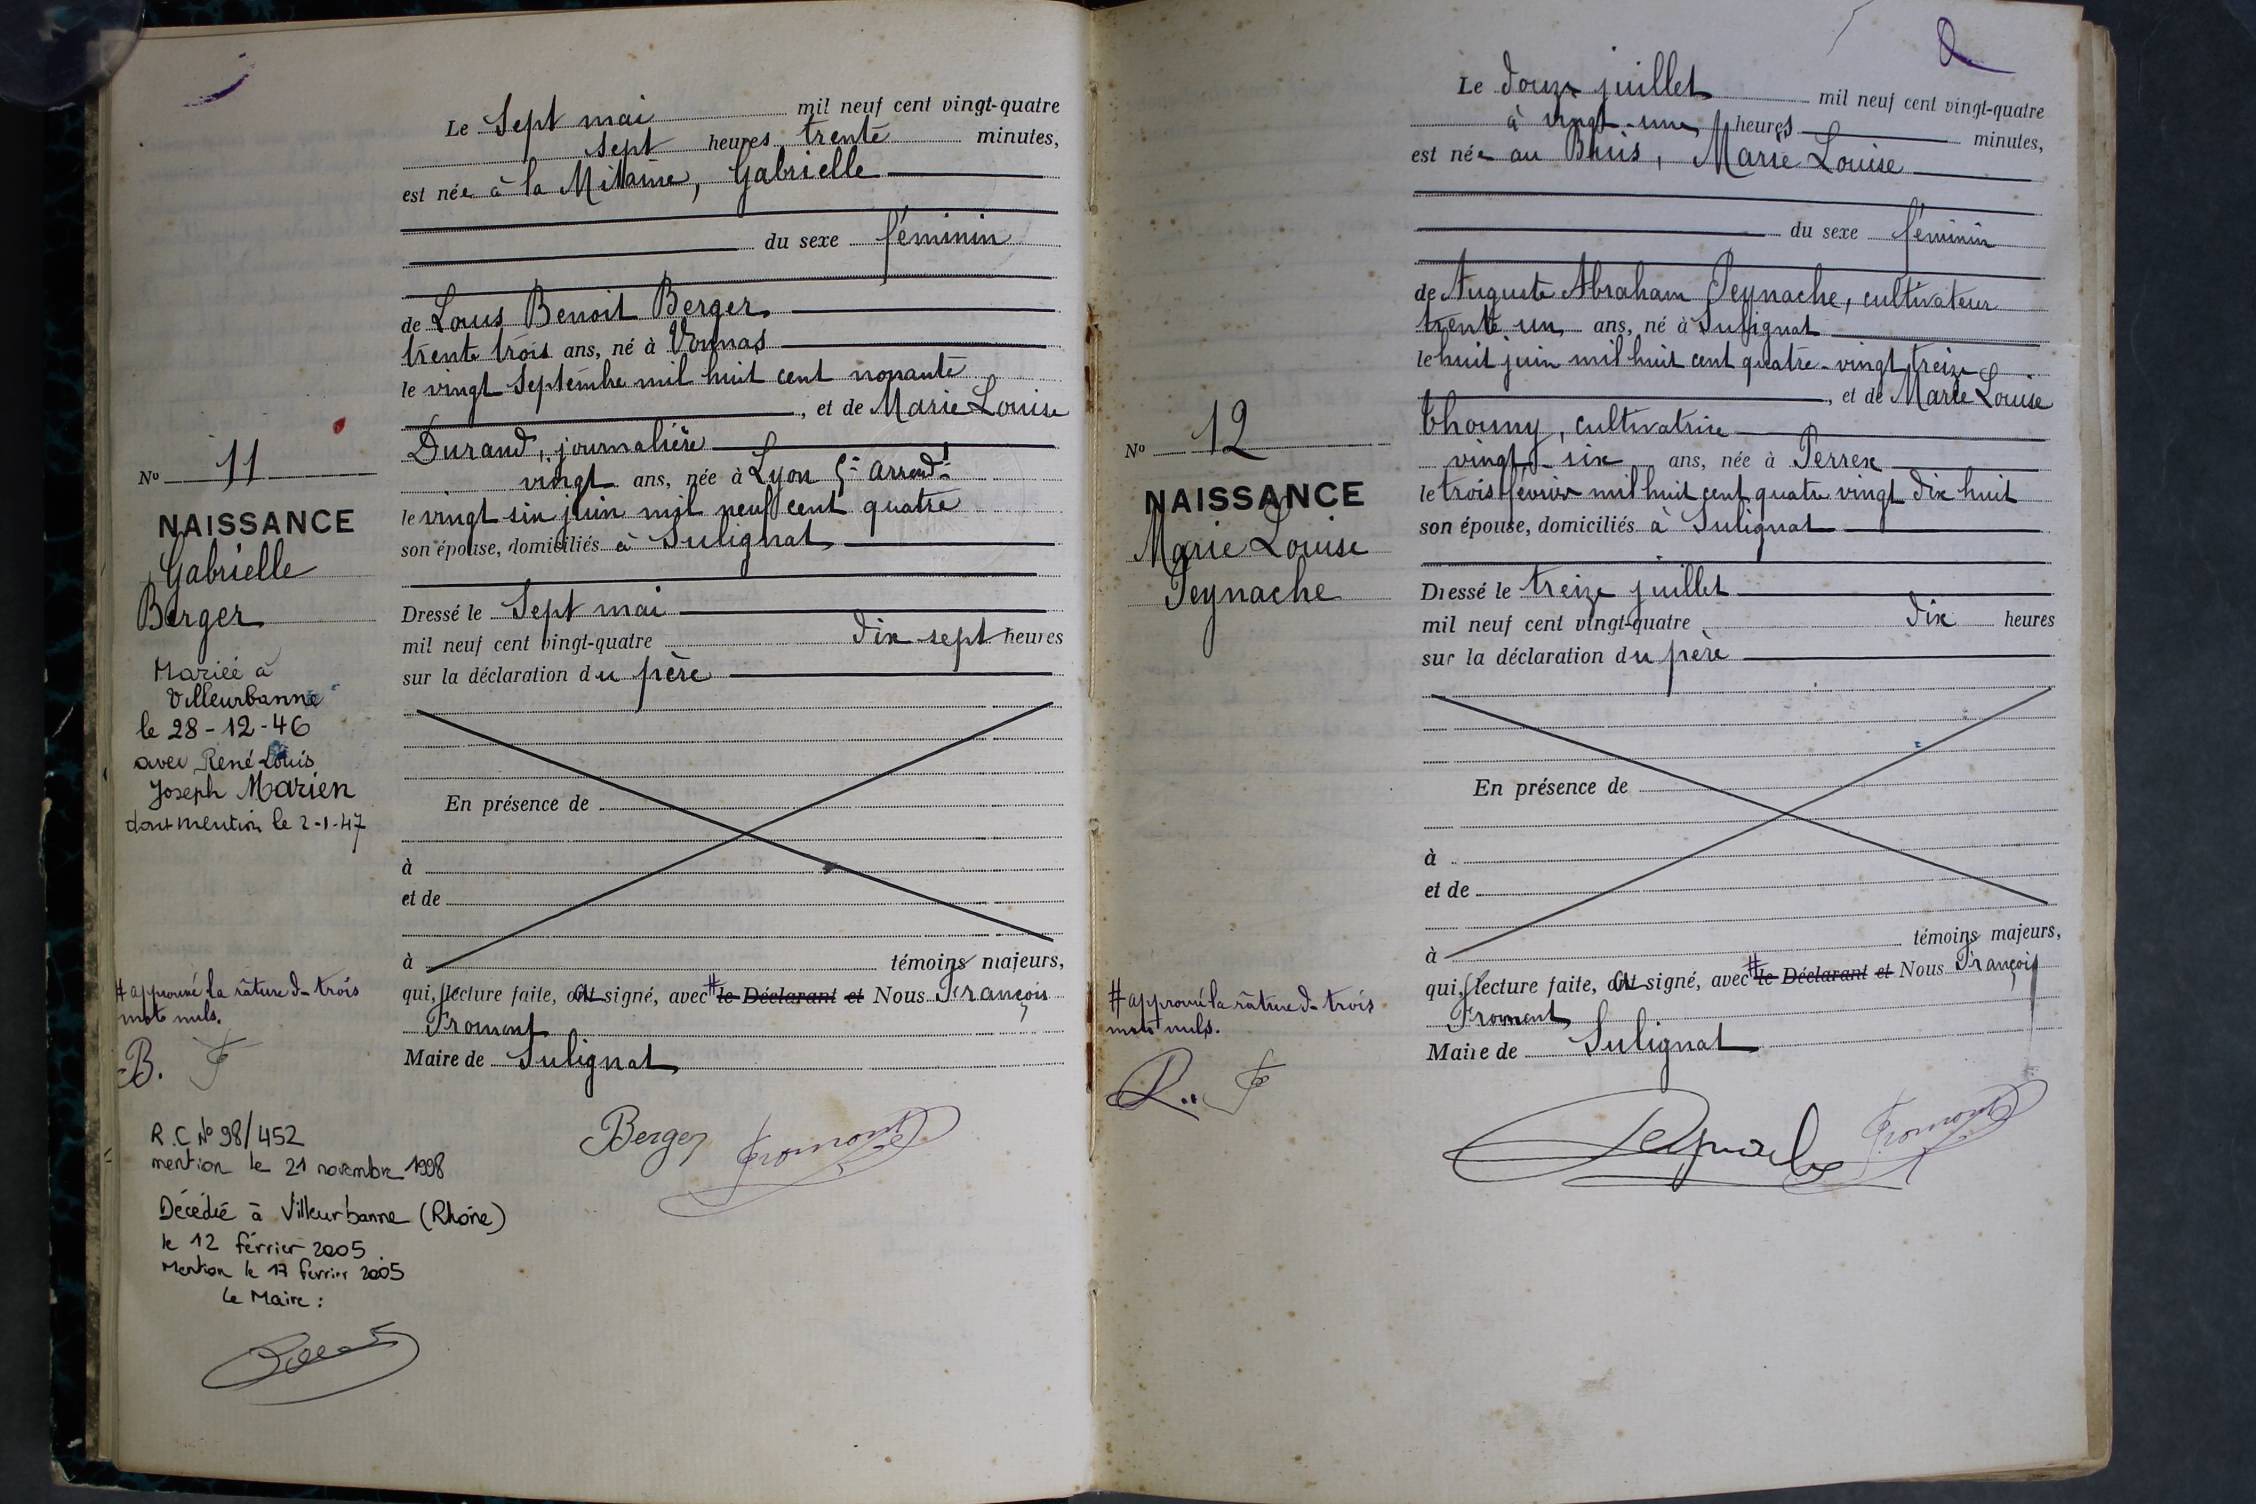 Le Sept mai mil neuf cent vingt-quatre
sept heures trente minutes,
est née à la Mitaine, Gabrielle
du sexe féminin
de Louis Benoit Berger
trente trois ans, né à Vonnas
le vingt septembre mil huit cent nonante
, et de Marie Louise
Durand, journalière
vingt ans, née à Lyon 5e arrondt
le vingt six juin mil neuf cent quatre
son épouse, domiciliés à Sulignat
Dressé le Sept mai
mil neuf cent vingt-quatre dix sept heures
sur la déclaration du père
En présence de
à
et de
à témoins majeurs,
qui, lecture faite, ont signé, avec # le Déclarant et Nous François
Froment
Maire de Sulignat
Berger Froment
No 11
NAISSANCE
Gabrielle
Berger
Mariée à
Villeurbanne
le 28-12-46
avec René Louis
Joseph Marien
dont mention le 2-1-47
# approuvé la râture de trois
mots nuls.
B. F
R.C No 98/452
mention le 21 novembre 1998
Décédée à Villeurbanne (Rhône)
le 12 février 2005
Mention le 17 février 2005
Le Maire :
Le douze juillet mil neuf cent vingt-quatre
à vingt-une heures minutes,
est née au Buis, Marie Louise
du sexe féminin
de Auguste Abraham Peynache, cultivateur
trente un ans, né à Sulignat
le huit juin mil huit cent quatre-vingt treize
, et de Marie Louise
Thomy, cultivatrice
vingt-six ans, née à Perrex
le trois février mil huit cent quatre vingt dix huit
son épouse, domiciliés à Sulignat
Dressé le treize juillet
mil neuf cent vingt-quatre dix heures
sur la déclaration du père
En présence de
à
et de
à témoins majeurs,
qui, lecture faite, ont signé, avec # le Déclarant et Nous François
Froment
Maire de Sulignat
Peynache Froment
No 12
NAISSANCE
Marie Louise
Peynache
# approuvé la râture de trois
mots nuls.
P. F